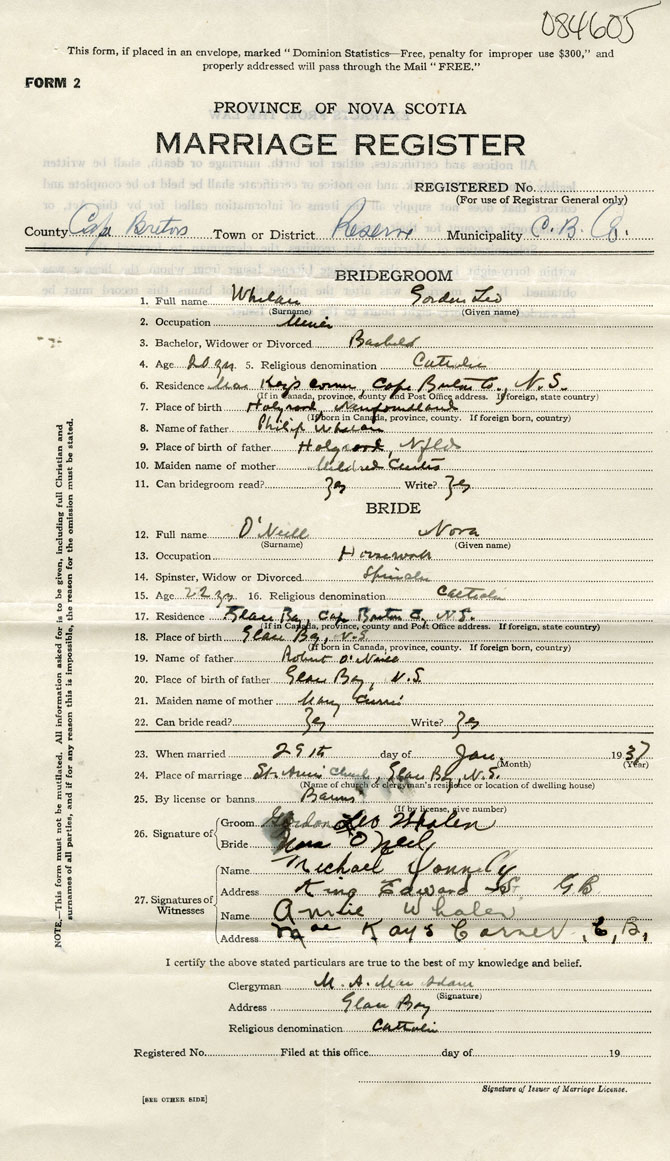 084605
This form, if placed in an envelope, marked "Dominion Statistics—Free, penalty for improper use $300," and
properly addressed will pass through the Mail "FREE."
FORM 2
PROVINCE OF NOVA SCOTIA
MARRIAGE REGISTER
REGISTERED No.
(For use of Registrar General only)
County Cape Breton Town or District Reserve Municipality C. B. Co.
BRIDEGROOM
1. Full name Whelan Gordon Leo
(Surname) (Given name)
2. Occupation Miner
3. Bachelor, Widower or Divorced Bachelor
4. Age 20 yrs. 5. Religious denomination Catholic
6. Residence Mac Kay's Corner, Cape Breton Co., N.S.
(If in Canada, province, county and Post Office address. If foreign, state country)
7. Place of birth Holyrood, Newfoundland
(If born in Canada, province, county. If foreign born, country)
8. Name of father Philip Whelan
9. Place of birth of father Holyrood, Nfld
10. Maiden name of mother Mildred Curtis
11. Can bridegroom read? Yes Write? Yes
BRIDE
12. Full name O'Neill Nora
(Surname) (Given name)
13. Occupation Housework
14. Spinster, Widow or Divorced Spinster
15. Age 22 yrs 16. Religious denomination Catholic
17. Residence Glace Bay, Cape Breton Co, N.S.
(If in Canada, province, county and Post Office address. If foreign, state country)
18. Place of birth Glace Bay, N.S.
(If born in Canada, province, county. If foreign born, country)
19. Name of father Robert O'Neill
20. Place of birth of father Glace Bay, N.S.
21. Maiden name of mother Mary Currie
22. Can bride read? Yes Write? Yes
23. When married 29th day of Jan. 1937
(Month) (Year)
24. Place of marriage St. Ann's Church, Glace Bay, N.S.
(Name of church or clergyman's residence or location of dwelling house)
25. By license or banns Banns
(If by license, give number)
26. Signature of Groom Gordon Leo Whalen
Bride Nora O'Neil
27. Signatures of Witnesses
Name Michael Donnelly
Address King Edward St. GB
Name Annie Whalen
Address Mac Kays Corner, C, B,
I certify the above stated particulars are true to the best of my knowledge and belief.
Clergyman M. A. Mac Adam
(Signature)
Address Glace Bay
Religious denomination Catholic
Registered No. Filed at this office day of 19
Signature of Issuer of Marriage License.
[SEE OTHER SIDE]
NOTE.—This form must not be mutilated. All information asked for is to be given, including full Christian and
surnames of all parties, and if for any reason this is impossible, the reason for the omission must be stated.